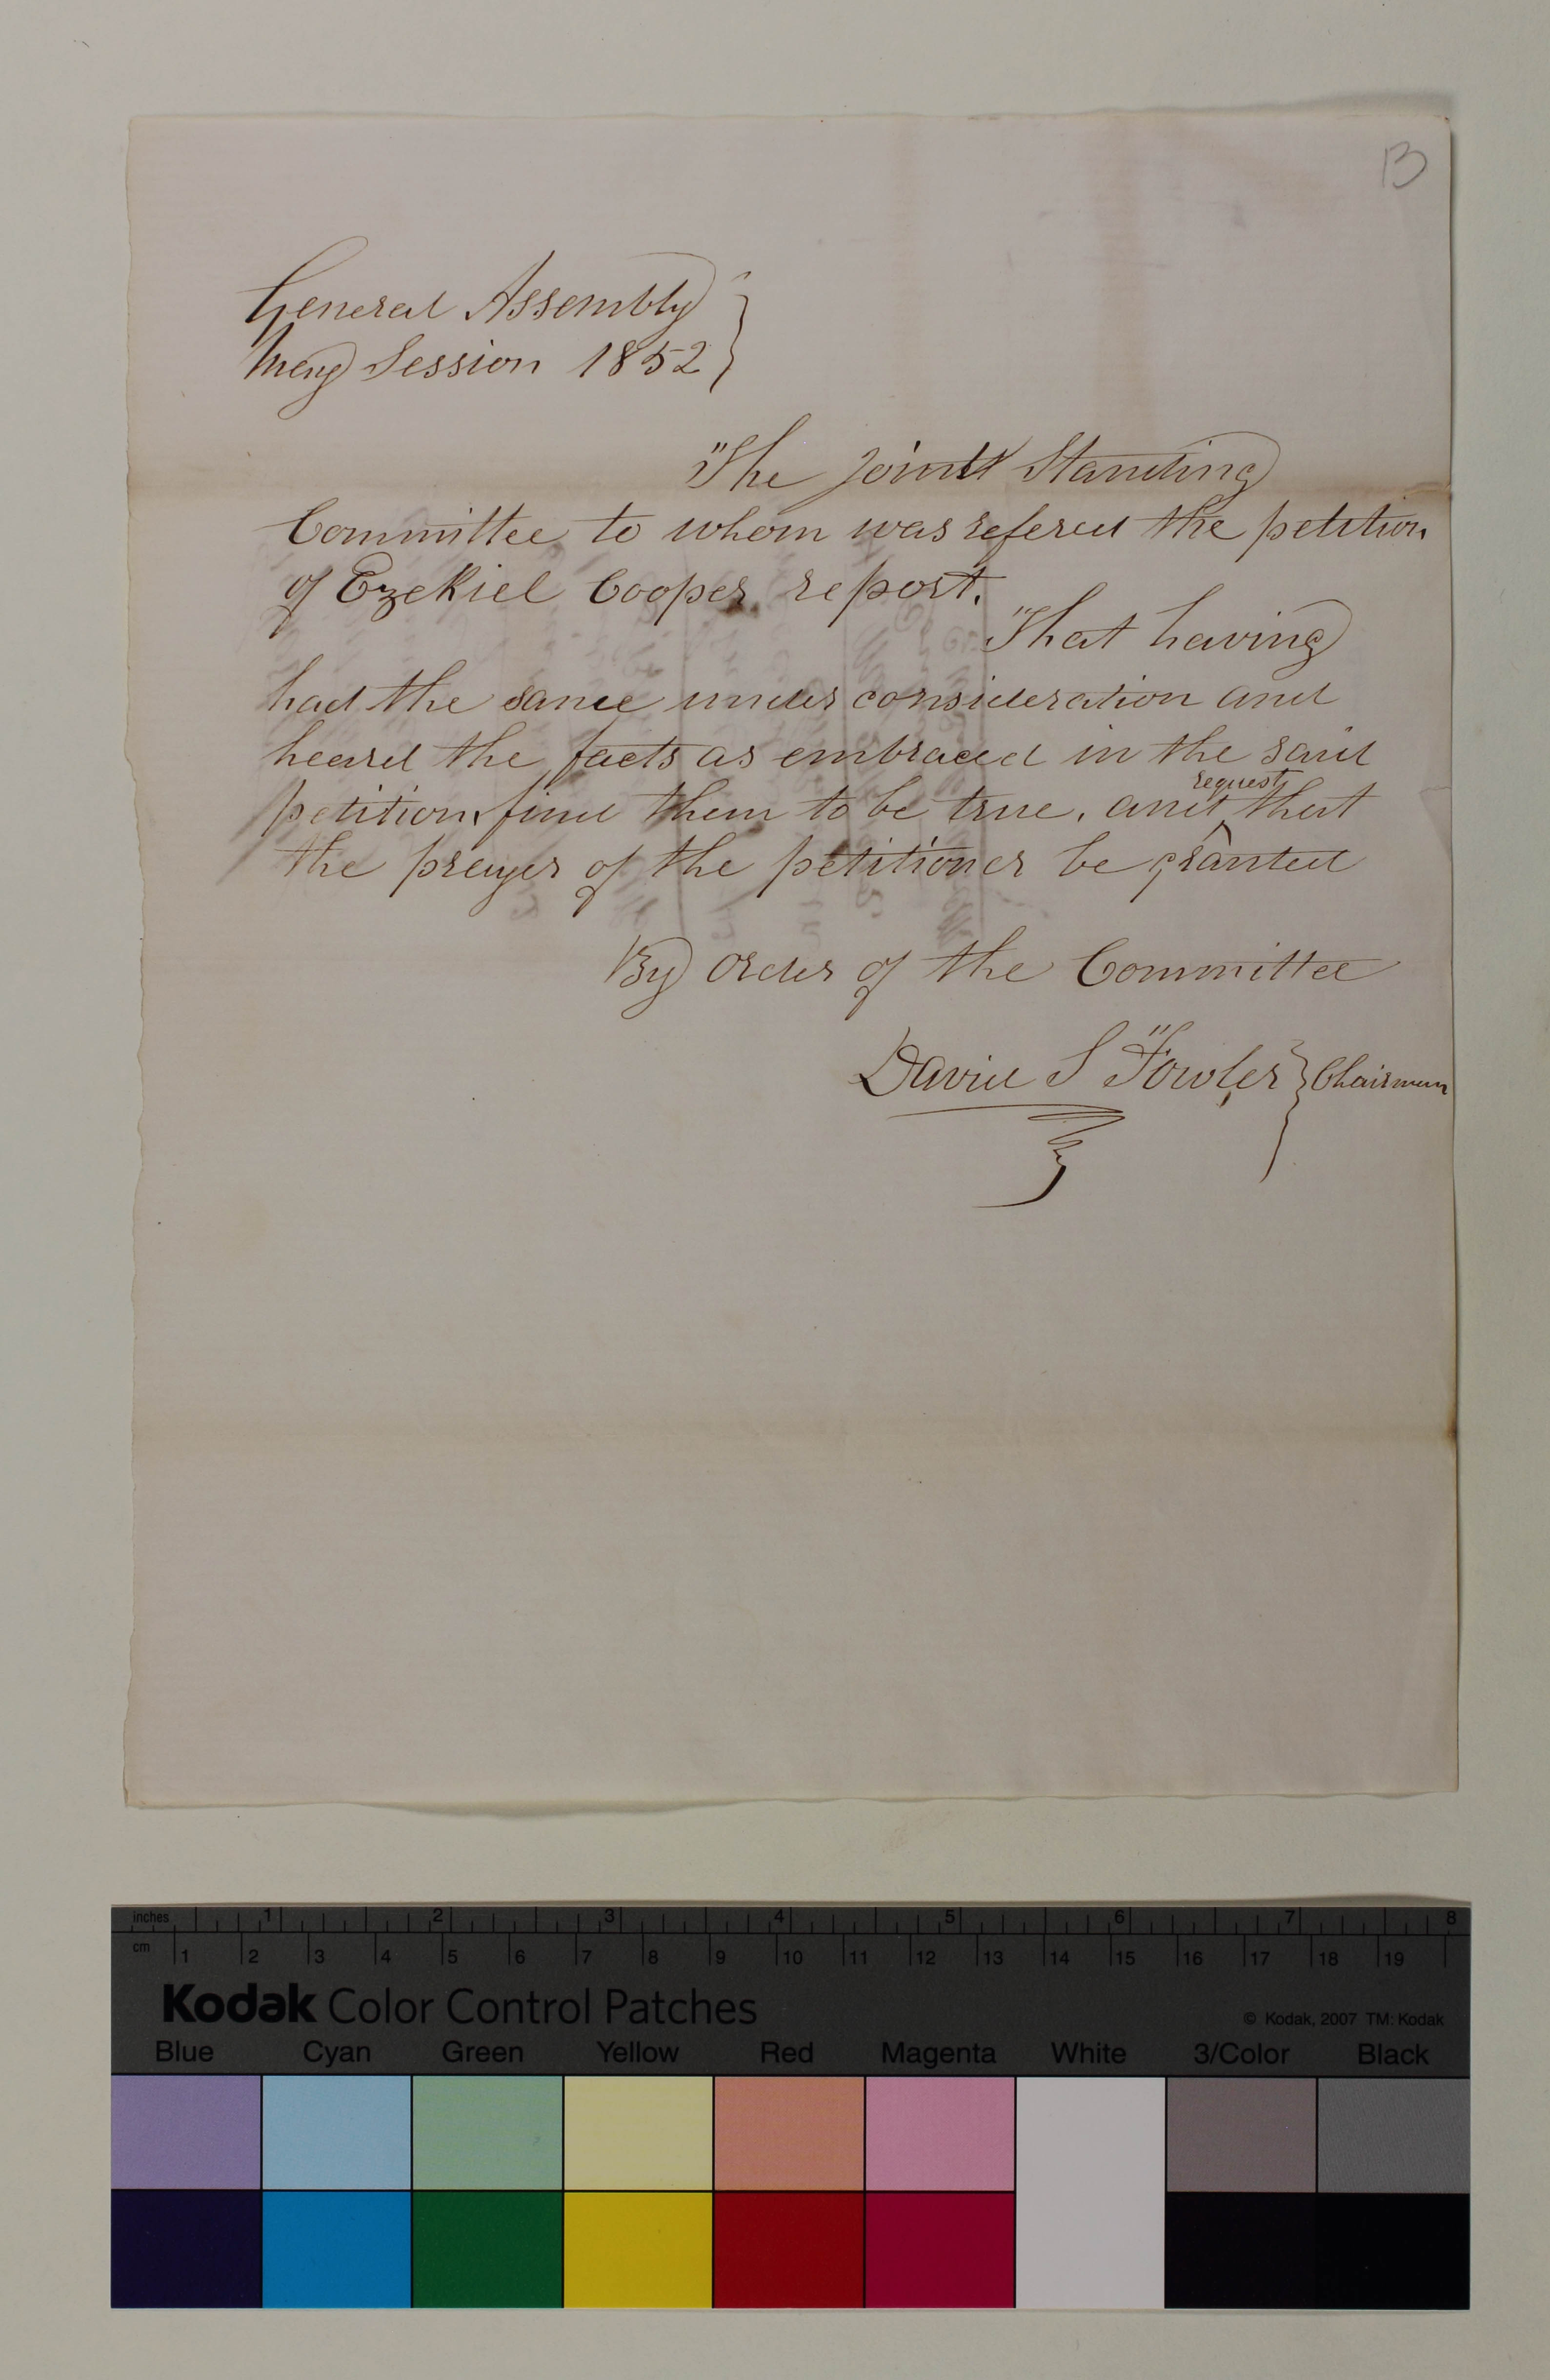 13
General Assembly }
May Session 1852 }
The Joint Standing
Committee to whom was refered the petition
of Ezekiel Cooper report.
That having
had the same under consideration and
heard the facts as embraced in the said
request
petition, find them to be true, and ^ that
the prayer of the petitioner be granted
By order of the Committee
David S Fowler } Chairman
inches 1 2 3 4 5 6 7 8
cm 1 2 3 4 5 6 7 8 9 10 11 12 13 14 15 16 17 18 19
Kodak Color Control Patches
© Kodak, 2007 TM: Kodak
Blue Cyan Green Yellow Red Magenta White 3/Color Black